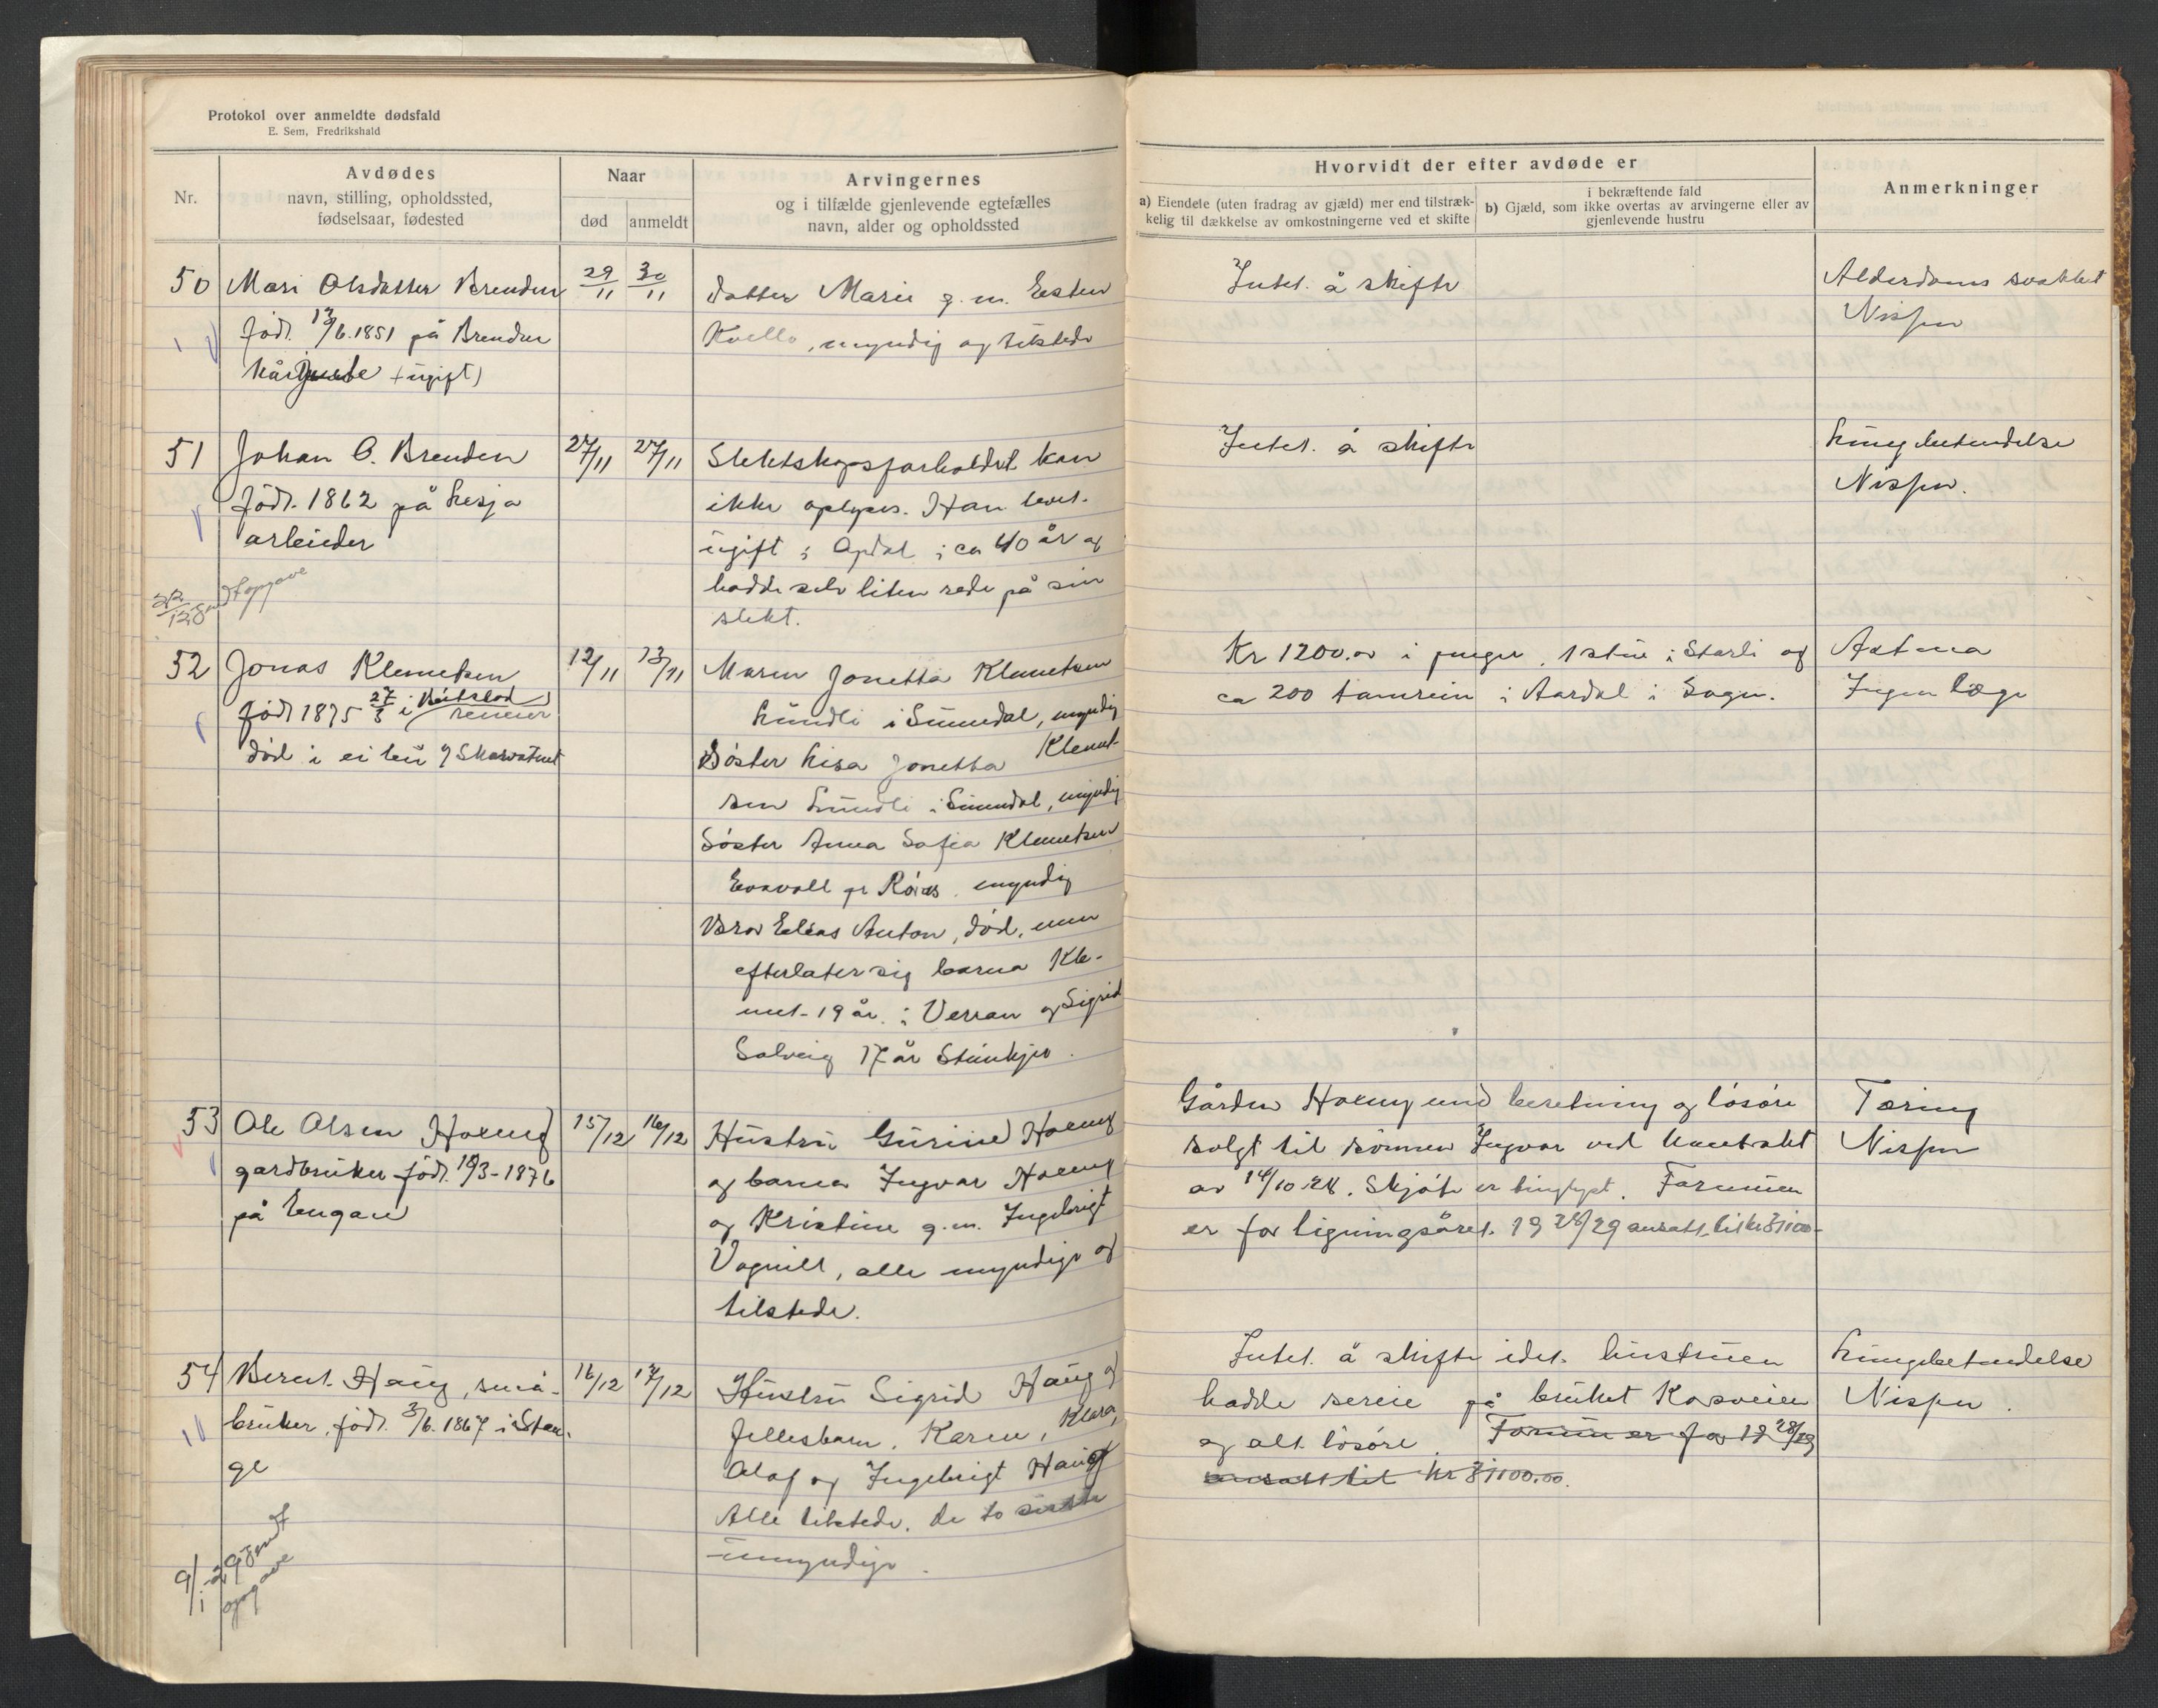 Protokol over anmeldte dødsfald
E. Sem, Fredrikshald
Nr.
Avdødes
navn, stilling, opholdssted,
fødselsaar, fødested
Naar
død
anmeldt
Arvingernes
og i tilfælde gjenlevende egtefælles
navn, alder og opholdssted
Hvorvidt der efter avdøde er
a) Eiendele (uten fradrag av gjæld) mer end tilstræk-
kelig til dækkelse av omkostningerne ved et skifte
i bekræftende fald
b) Gjæld, som ikke overtas av arvingerne eller av
gjenlevende hustru
Anmerkninger
50 Mari Olsdatter Brenden 29/11 30/11
født 13/6.1851 på Brenden
(ugift)
datter Marie g.m. Esten
Kvello, myndig og tilstede
Intet å skifte
Alderdoms svakhet
Nissen
51 Johan O. Brenden 27/11 27/11
født 1862 på Lesja
arbeider
Slektskapsforholdet kan
ikke oplyses. Han levet
ugift i Opdal i ca 40 år og
hadde selv liten rede på sin
slekt.
Intet å skifte
Lungebetendelse
Nissen.
22/12 28 sendt opgave
52 Jonas Klemetsen 12/11 13/11
født 1875 27/3 i
død i ei bu v/ Skarvatnet
Maren Jonetta Klemetsen
Grindli i Sunndal, myndig
Søster Lisa Jonetta Klemet-
sen Grindli i Sunndal, myndig
Søster Anna Sofia Klemetsen
Evavoll pr Røros. myndig
Bror Elias Anton, død, men
efterlater sig barna Kle-
met 19 år i Verran og Sigrid
Solveig 17 år Steinkjer.
Kr 1200.00 i penger, 1 stue i Storli og
ca 200 tamrein i Aardal i Sogn.
Astma
Ingen læge
53 Ole Olsen Hoeng 15/12 16/12
gardbruker født 18/3-1876
på Engan
Hustru Gurine Hoeng
og barna Ingvar Hoeng
og Kristine g.m. Ingebrigt
Vognill, alle myndige og
tilstede.
Gården Hoeng med besetning og løsøre
solgt til sønnen Ingvar ved kontrakt
av 14/10 28. Skjøte er tinglyst. Formuen
er for ligningsåret 1928/29 ansatt til kr 3100-
Tæring
Nissen
54 Bernt Haug, små- 16/12 17/12
bruker, født 3/6.1867 i Stan-
ge
Hustru Sigrid Haug og
fellesbarn, Karen, Klara,
Olaf og Ingebrigt Haug
Alle tilstede. De to siste
umyndige.
Intet å skifte idet hustruen
hadde sereie på bruket Kosveien
og alt løsøre. Formuen er for 1928/29
ansatt til kr 3100.00.
Lungebetendelse
Nissen.
9/1-29 sendt
opgave